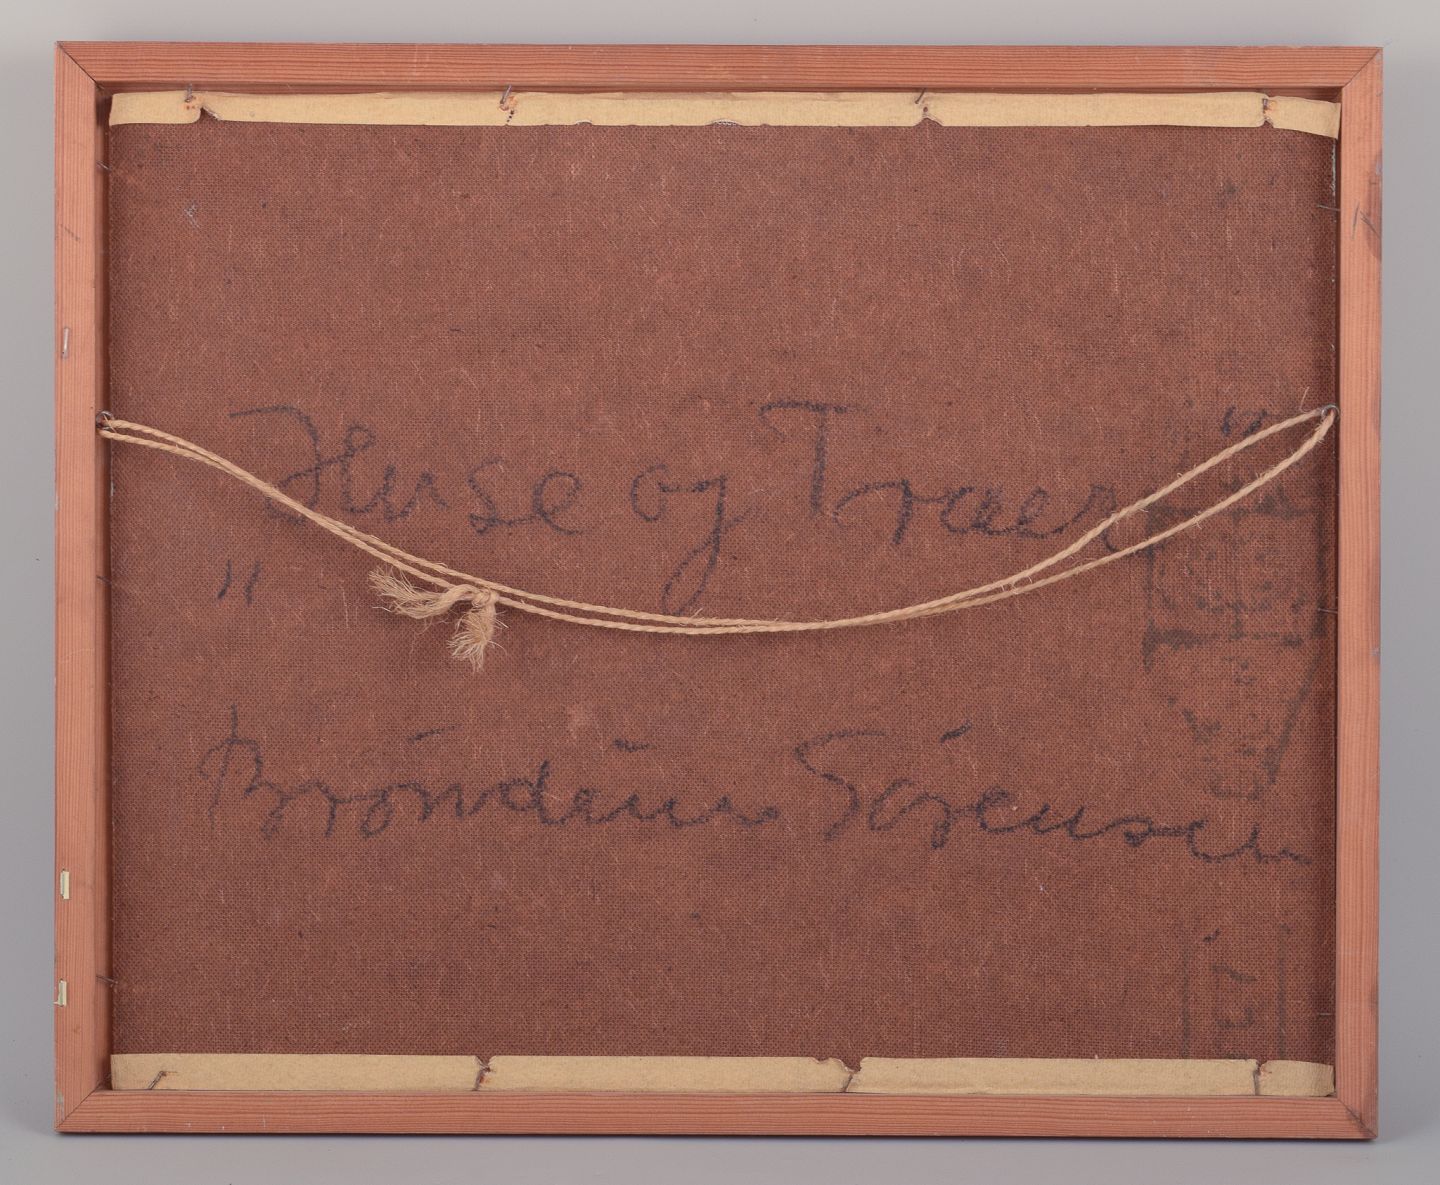 "Huse og Træer"
Bröndum Sörensen